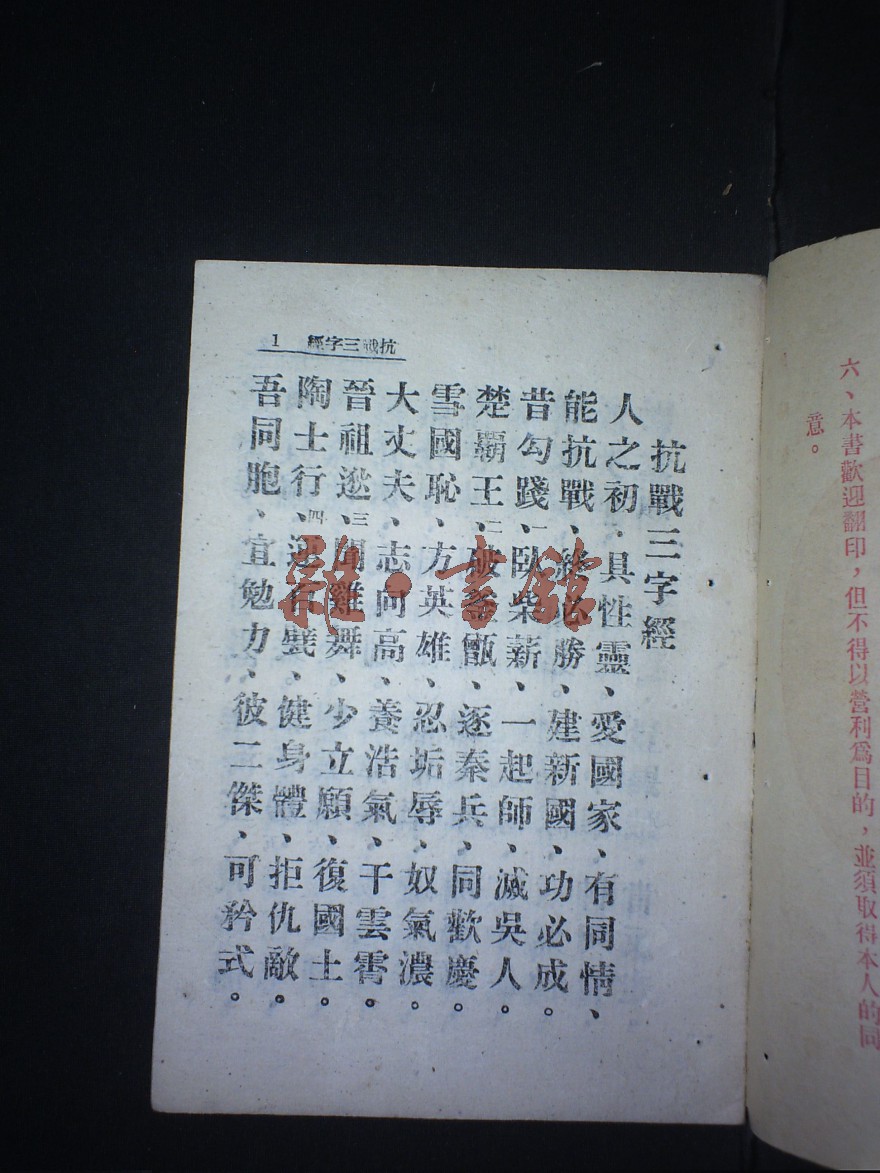 六、本書歡迎翻印，但不得以營利爲目的，並須取得本人的同
意。
抗戰三字經 1
抗戰三字經
人之初、具性靈、愛國家、有同情、
能抗戰、終必勝。建新國、功必成。
昔勾踐、一臥柴薪、一起師、滅吳人。
楚覇王、二破釜甑、逐秦兵、同歡慶。
雪國恥、方英雄、忍垢辱、奴氣濃。
大丈夫、志向高、養浩氣、干雲霄。
晉祖逖、三聞雞舞、少立願、復國土。
陶士行、四運百甓、健身體、拒仇敵。
吾同胞、宜勉力、彼二傑、可矜式。
書館